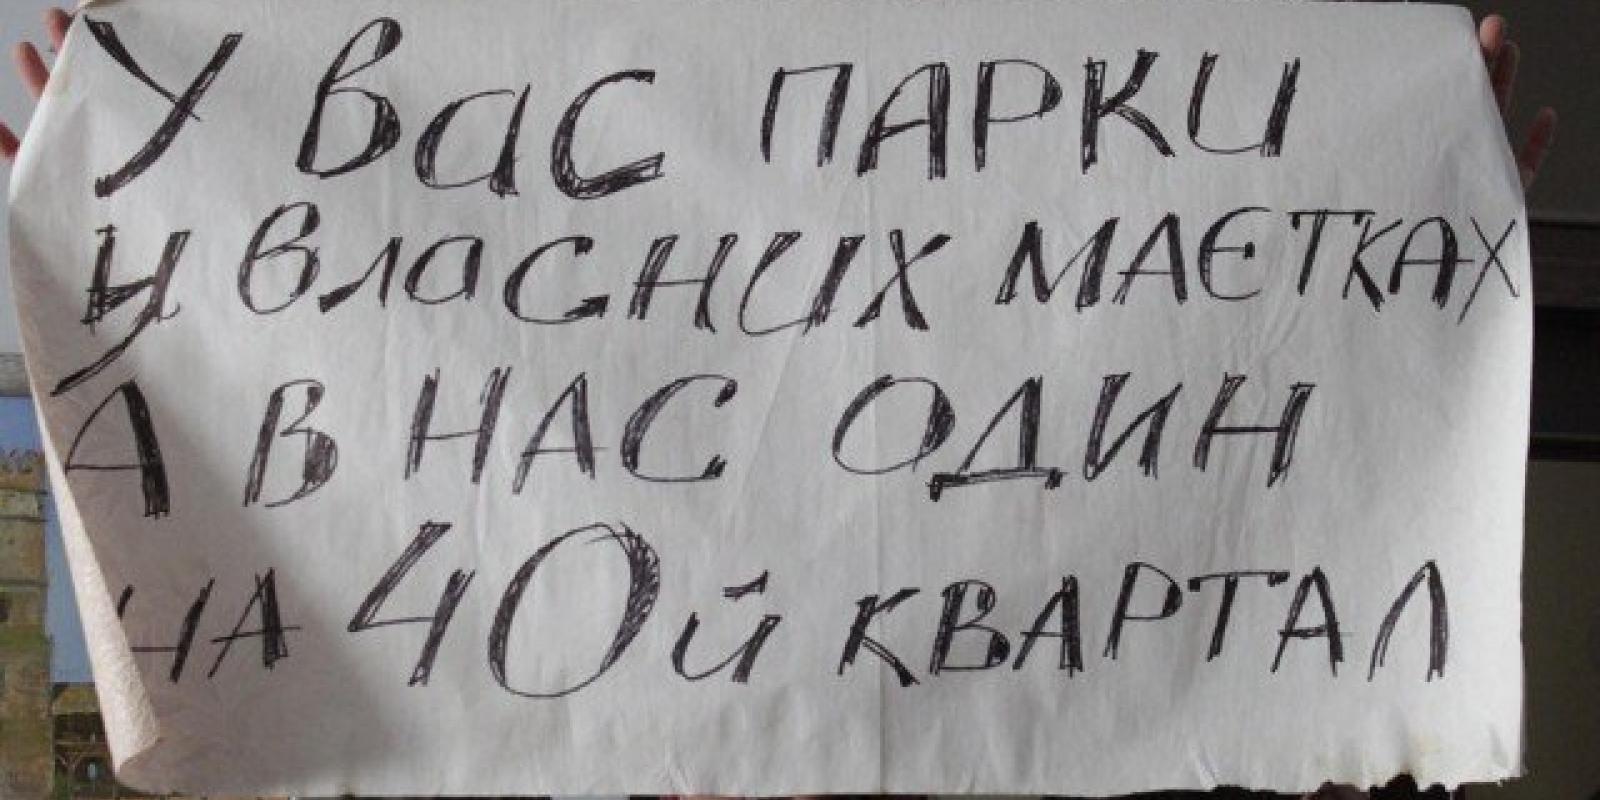 У вас ПАРКИ
у власних МАЄТКАХ
А В НАС ОДИН
НА 40й КВАРТАЛ